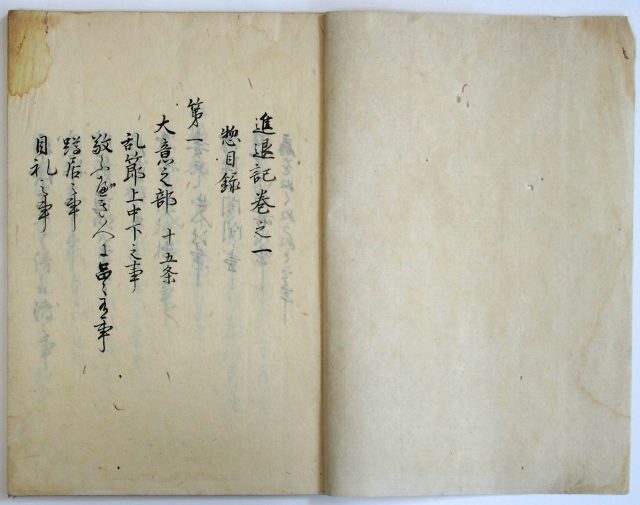 進退記巻之一
惣目録
第一
大意之部 十五条
礼節上中下之事
敬ふ べき人に品々有事
蹲居之事
目礼之事